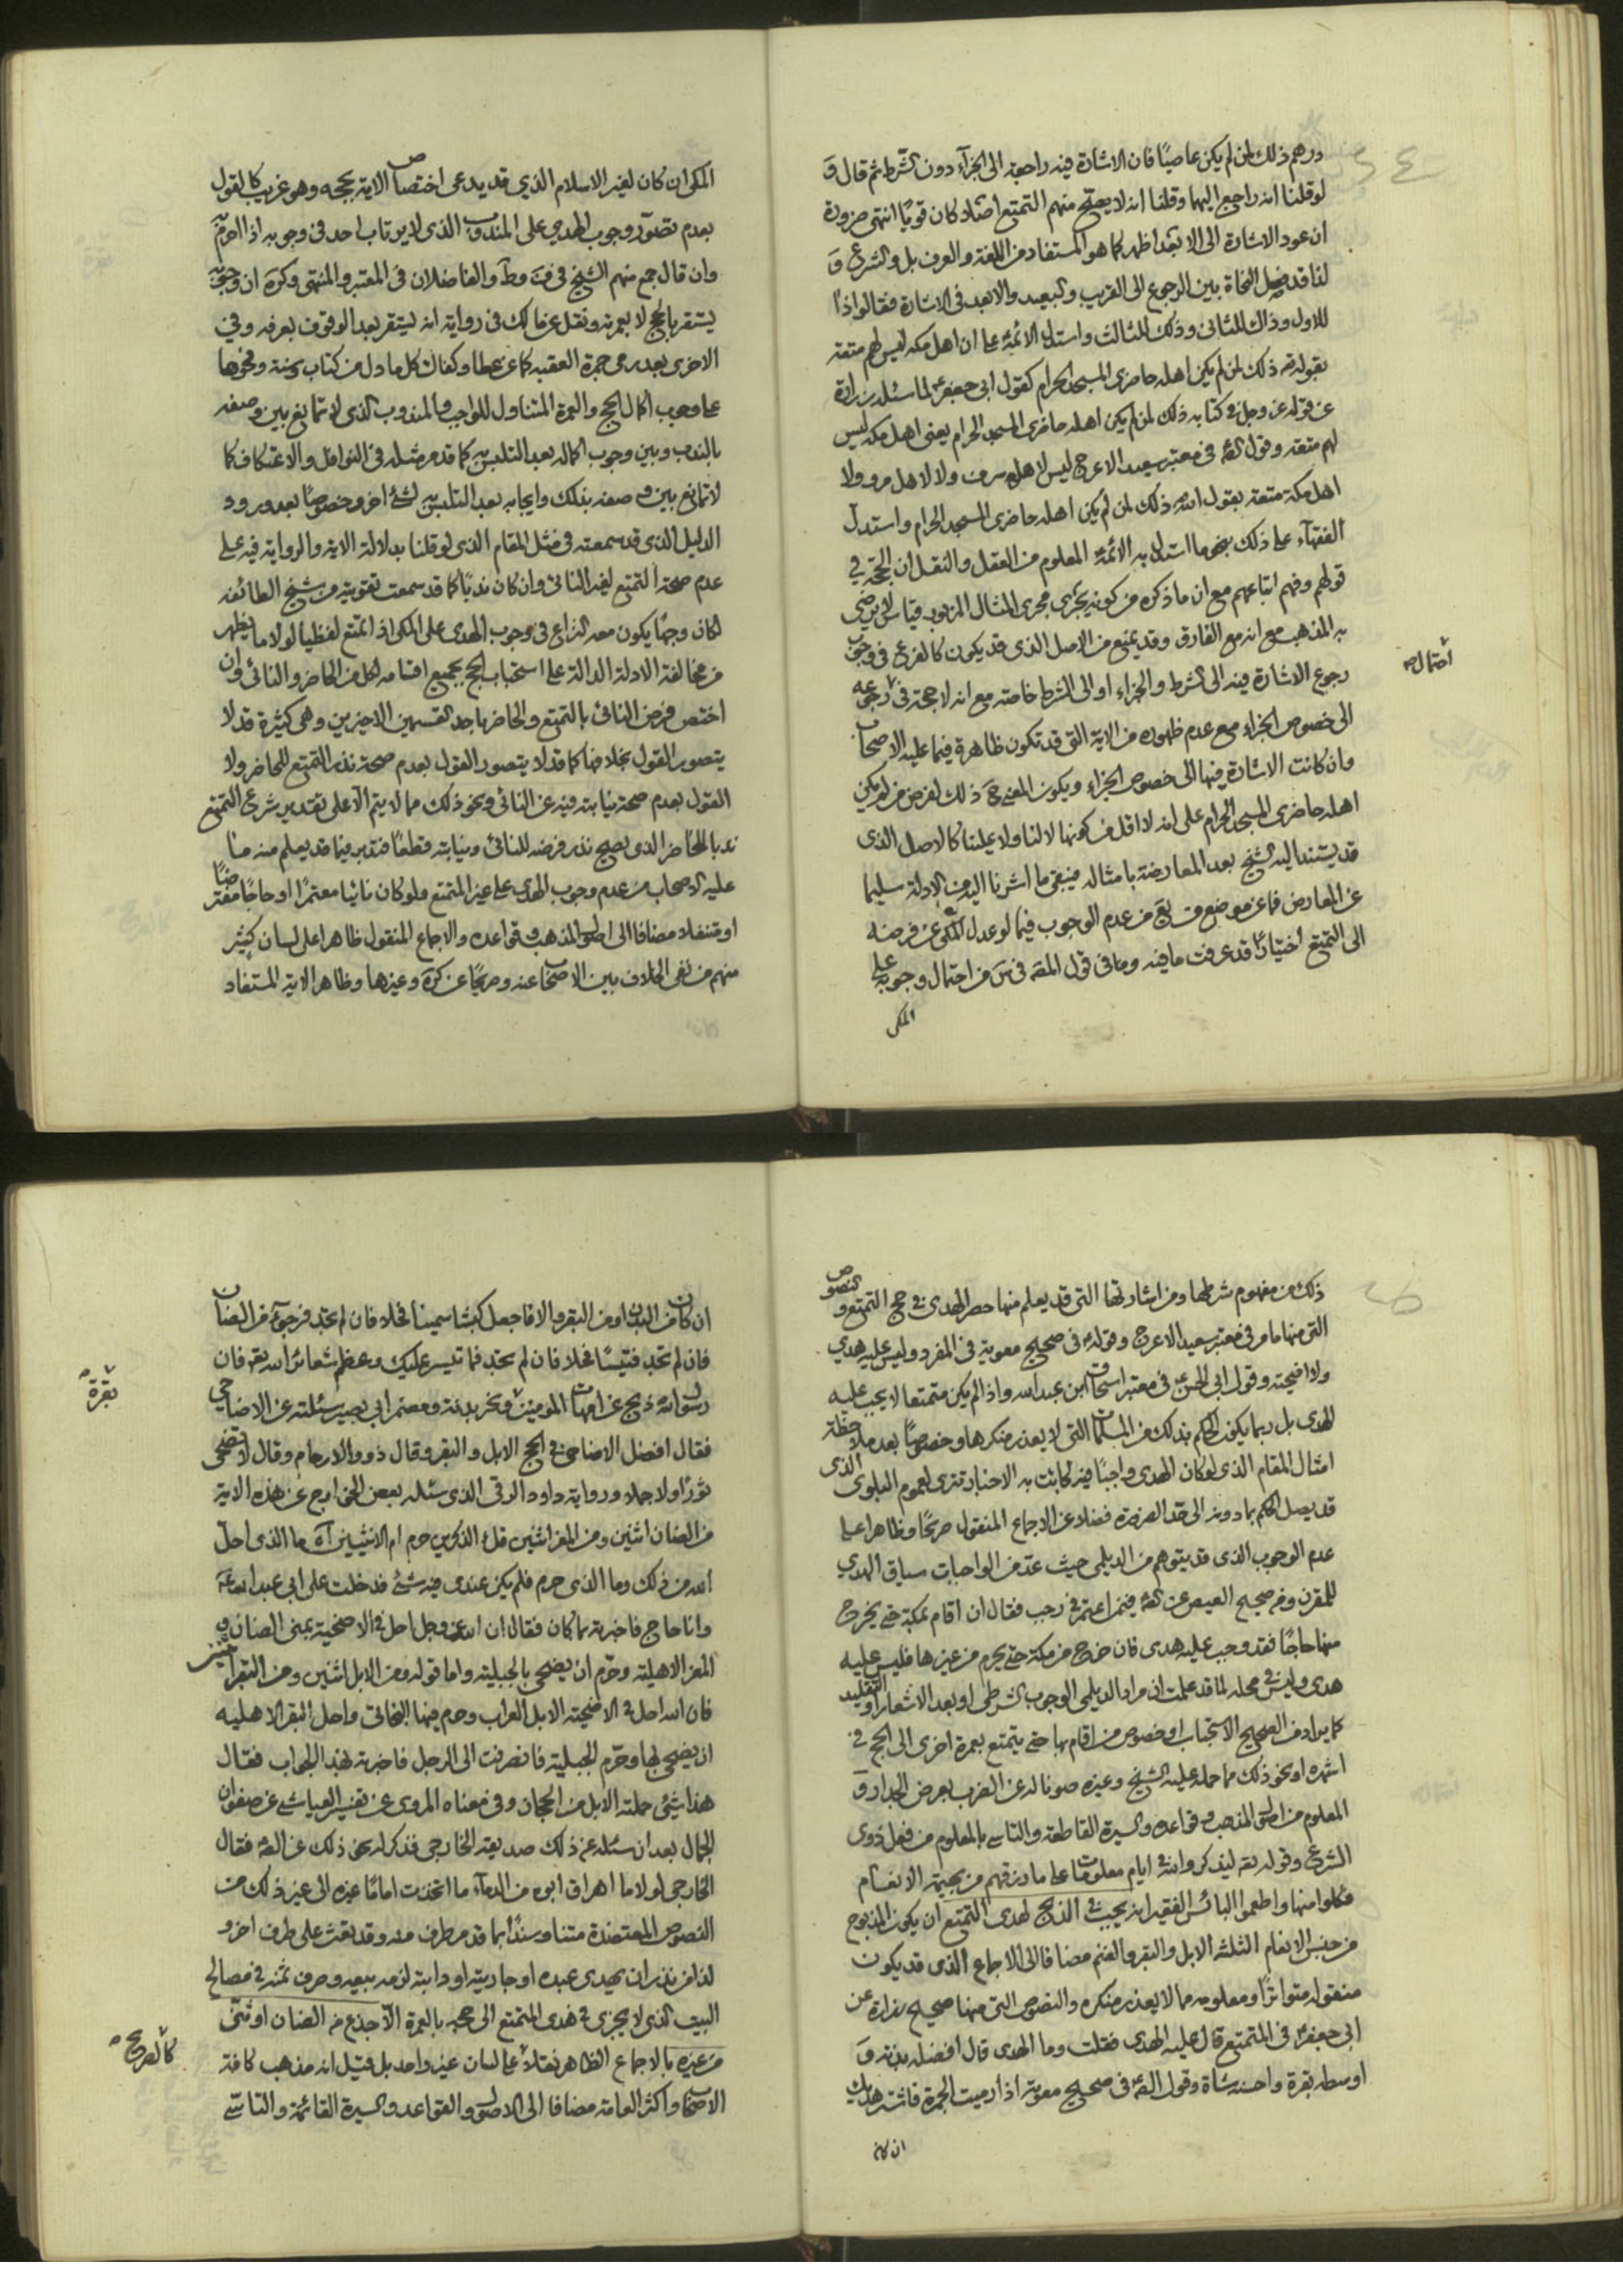 درهم ذلك لمن لم يكن عاصيًا فان الاشارة فيه راجعة الى الجزآء دون الشرط ثم قال و
لو قلنا انه راجع اليهما وقلنا انه لا يصح منهم التمتع اصلا لكان قويًا انتهى ضرورة
ان عود الاشارة الى الابعد اظهر كما هو المستفاد من اللغة والعرف بل والشرع و
لذا قد فصل النحاة بين الرجوع الى القريب والبعيد والابعد في الاشارة فقالوا ذا
للاول وذاك للثانى وذلك للثالث واستدل الائمة على ان اهل مكه ليس لهم متعة
بقوله تع ذلك لمن لم يكن اهله حاضرى المسجد الحرام كقول ابى جعفر لما سئله زرارة
عن قوله عز وجل في كتابه ذلك لمن لم يكن اهله حاضرى المسجد الحرام يعنى اهل مكه ليس
لهم متعه وقول الصم فى معتبر سعيد الاعرج ليس لاهل سرف ولا لاهل مر ولا
اهل مكة متعة بقول الله ذلك لمن لم يكن اهله حاضرى المسجد الحرام واستدل
الفقهآء على ذلك بنحو ما استدل به الائمة المعلوم من العقل والنقل ان الحجة في
قولهم وفهم اتباعهم مع ان ما ذكره من كونه يجرى مجرى المثال المزبور قياس لا يرضى
به المذهب مع انه مع الفارق وقد يمنع من الاصل الذى قد يكون كالفرع فى وجوب
احتمال
رجوع الاشارة فيه الى الشرط والجزاء او الى الشرط خاصه مع انه لا حجة فى رجوعه
الى خصوص الجزاء مع عدم ظهوره من الاية التى قد تكون ظاهرة فيما عليه الاصحاب
وان كانت الاشارة فيها الى خصوص الجزاء ويكون المعنى ح ذلك لفرض من لم يكن
اهله حاضرى المسجد الحرام على انه لا اقل من كونها لا لنا ولا علينا كالاصل الذى
قد يستند اليه الشيخ بعد المعارضة بامثاله فيبقى ما اشرنا اليه من الادلة سليما
عن المعارض فما عن موضع من يع من عدم الوجوب فيما لو عدل المكى عن فرضه
الى التمتع اختيارًا قد عرفت ما فيه وما فى قول المصه فى س من احتمال وجوبه على
المكى
المكى ان كان لغير الاسلام الذي قد يدعى اختصاص الاية بحجه وهو غريب كالقول
بعدم تصوّر وجوب الهدي على المندوب الذى لا يرتاب احد فى وجوبه اذا احرم به
وان قال جمع منهم الشيخ فى ف وط والفاضلان فى المعتبر والمنتهى وكره ان وجوبه
يستقر بالحج لا بعمرته ونقل عن مالك فى رواية انه يستقر بعد الوقوف بعرفه وفي
الاخرى بعد رمى جمرة العقبه كما عن عطا وكفاك كل ما دل من كتاب وسنة ونحوها
على وجوب اكمال الحج والعمرة المتناول للواجب والمندوب الذى لا تمانع بين وصفه
بالندب وبين وجوب اكماله بعد التلبس به كما قد مر مثله فى النوافل والاعتكاف كما
لا تمانع بين وصفه بذلك وايجابه بعد التلبس لشئ اخر وخصوصًا بعد ورود
الدليل الذى قد سمعته فى مثل المقام الذى لو قلنا بدلالة الاية والرواية فيه على
عدم صحة التمتع لغير النائى وان كان ندبًا كما قد سمعت تقويته من شيخ الطائفه
لكان وجهًا يكون معه النزاع فى وجوب الهدى على المكى اذا تمتع لفظيا لولا ما يظهر
من مخالفة الادلة الدالة على استحباب الحج بجميع اقسامه لكل من الحاضر والنائى وان
اختص فرض النائى بالتمتع والحاضر باحد القسمين الاخيرين وهى كثيرة قد لا
يتصور القول بخلافها كما قد لا يتصور القول بعدم صحة نذر التمتع للحاضر ولا
القول بعدم صحة نيابته فيه عن النائى ونحو ذلك مما لا يتم الا على تقدير شرع التمتع
ندبا للحاضر الذى يصح نذر فرضه للنائى ونيابته قطعًا فتدبر فيما قد يعلم منه ما
عليه الاصحاب من عدم وجوب الهدى على غير المتمتع ولو كان نائيا معتمرًا او حاجًا مفترضًا
او متنفلا مضافا الى اصول المذهب وقواعده والاجماع المنقول ظاهرا على لسان كثير
منهم من نفى الخلاف بين الاصحاب عنه وصريحًا عن كره وغيرها وظاهر الاية المستفاد
ذلك من مفهوم شرطها ومن اشارتها التى قد يعلم منها حصر الهدى فى حج التمتع والنصوص
التى منها ما مر فى معتبر سعيد الاعرج وقوله فى صحيح معوية فى المفرد وليس عليه هدي
ولا اضحية وقول ابى الحسن فى معتبر اسحاق ابن عبدالله واذا لم يكن متمتعا لا يجب عليه
الهدى بل ربما يكون الحكم بذلك من المسلمات التى لا يعذر منكرها وخصوصًا بعد ملاحظة
امثال المقام الذى لو كان الهدى واجبًا فيه لجائت به الاخبار تترى لعموم البلوى الذى
قد يصل الحكم بما دونه الى حد الضرورة فضلا عن الاجماع المنقول صريحًا وظاهرا على
عدم الوجوب الذى قد يتوهم من الديلمى حيث عد من الواجبات سياق الهدي
للمقرن ومن صحيح العيص عن الصم فيمن اعتمر فى رجب فقال ان اقام بمكة حتى يخرج
منها حاجًا فقد وجب عليه هدى فان خرج من مكة حتى يحرم من غيرها فليس عليه
هدى وليس فى محله لما قد علمت ان مراد الديلمى الوجوب الشرطى او بعد الاشعار او التقليد
كما يراد من الصحيح الاستحباب او خصوص من اقام بها حتى يتمتع بعمرة اخرى الى الحج فى
اشهره او نحو ذلك مما حمله عليه الشيخ وغيره صونا له عن الضرب بعرض الجدار و
المعلوم من اصول المذهب وقواعده والسيرة القاطعة والتاسى بالمعلوم من فعل ذوى
الشرع وقوله تع ليذكروا الله فى ايام معلومات على ما رزقهم من بهيمة الانعام
فكلوا منها واطعموا البائس الفقير انه يجب فى الذبح لهدى التمتع ان يكون المذبوح
من جنس الانعام الثلثه الابل والبقر والغنم مضافا الى الاجماع الذى قد يكون
منقوله متواترًا ومعلومه مما لا يعذر منكره والنصوص التى منها صحيح زرارة عن
ابى جعفر فى المتمتع قال عليه الهدى فقلت وما الهدى قال افضله بدنة و
اوسطه بقرة واحسنه شاة وقول الصم فى صحيح معوية اذا رميت الجمرة فاشتر هديك
ان كان
ان كان من البدن او من البقر والا فاجعل كبشا سمينا فحلا فان لم تجد فموجوءا من الضان
فان لم تجد فتيسًا فحلا فان لم تجد فما تيسر عليك وعظم شعائر الله تع فان
بقرة
رسول الله ذبح عن امهات المومنين ونحر بدنة ومضمر ابى بصير سئلته عن الاضاحي
فقال افضل الاضاحى فى الحج الابل والبقر وقال ذووا الارحام وقال لا تضحى
ثورًا ولا جملا ورواية داود الرقى الذى سئله بعض الخوارج عن هذه الاية
من الضان اثنين ومن المعز اثنين قل ءالذكرين حرم ام الانثيين اه ما الذى احل
الله من ذلك وما الذى حرم فلم يكن عندى فيه شئ فدخلت على ابى عبد الله ع
وانا حاج فاخبرته بما كان فقال ان الله عز وجل احل فى الاضحية بمنى الضان و
المعز الاهلية وحرم ان يضحى بالجبلية واما قوله ومن الابل اثنين ومن البقر اثنين
فان الله احل فى الاضحية الابل العراب وحرم فيها البخاتى واحل البقر الاهليه
ان يضحى بها وحرم الجبلية فانصرفت الى الرجل فاخبرته بهذا الجواب فقال
هذا شئ حملته الابل من الحجاز وفى معناه المروى عن تفسير العياشى عن صفوان
الجمال بعد ان سئله عن ذلك صديقه الخارجى فذكر له نحو ذلك عن الصم فقال
الخارجى لولا ما اهراق ابوه من الدمآء ما اتخذت امامًا غيره الى غير ذلك من
النصوص المعتضدة متنا وسندًا بما قد مر طرف منه وقد يقف على طرف اخر و
لذا من نذر ان يهدى عبده او جاريته او دابته لزمه بيعه وصرف ثمنه فى مصالح
البيت الذى لا يجزى فى هدى المتمتع الى حجه بالعمرة الا جذع من الضان او ثنى
كالصريح
من غيره بالاجماع الظاهر نقله على لسان غير واحد بل قيل انه مذهب كافة
الاصحاب واكثر العامة مضافا الى الاصول والقواعد والسيرة القائمة والتاسى